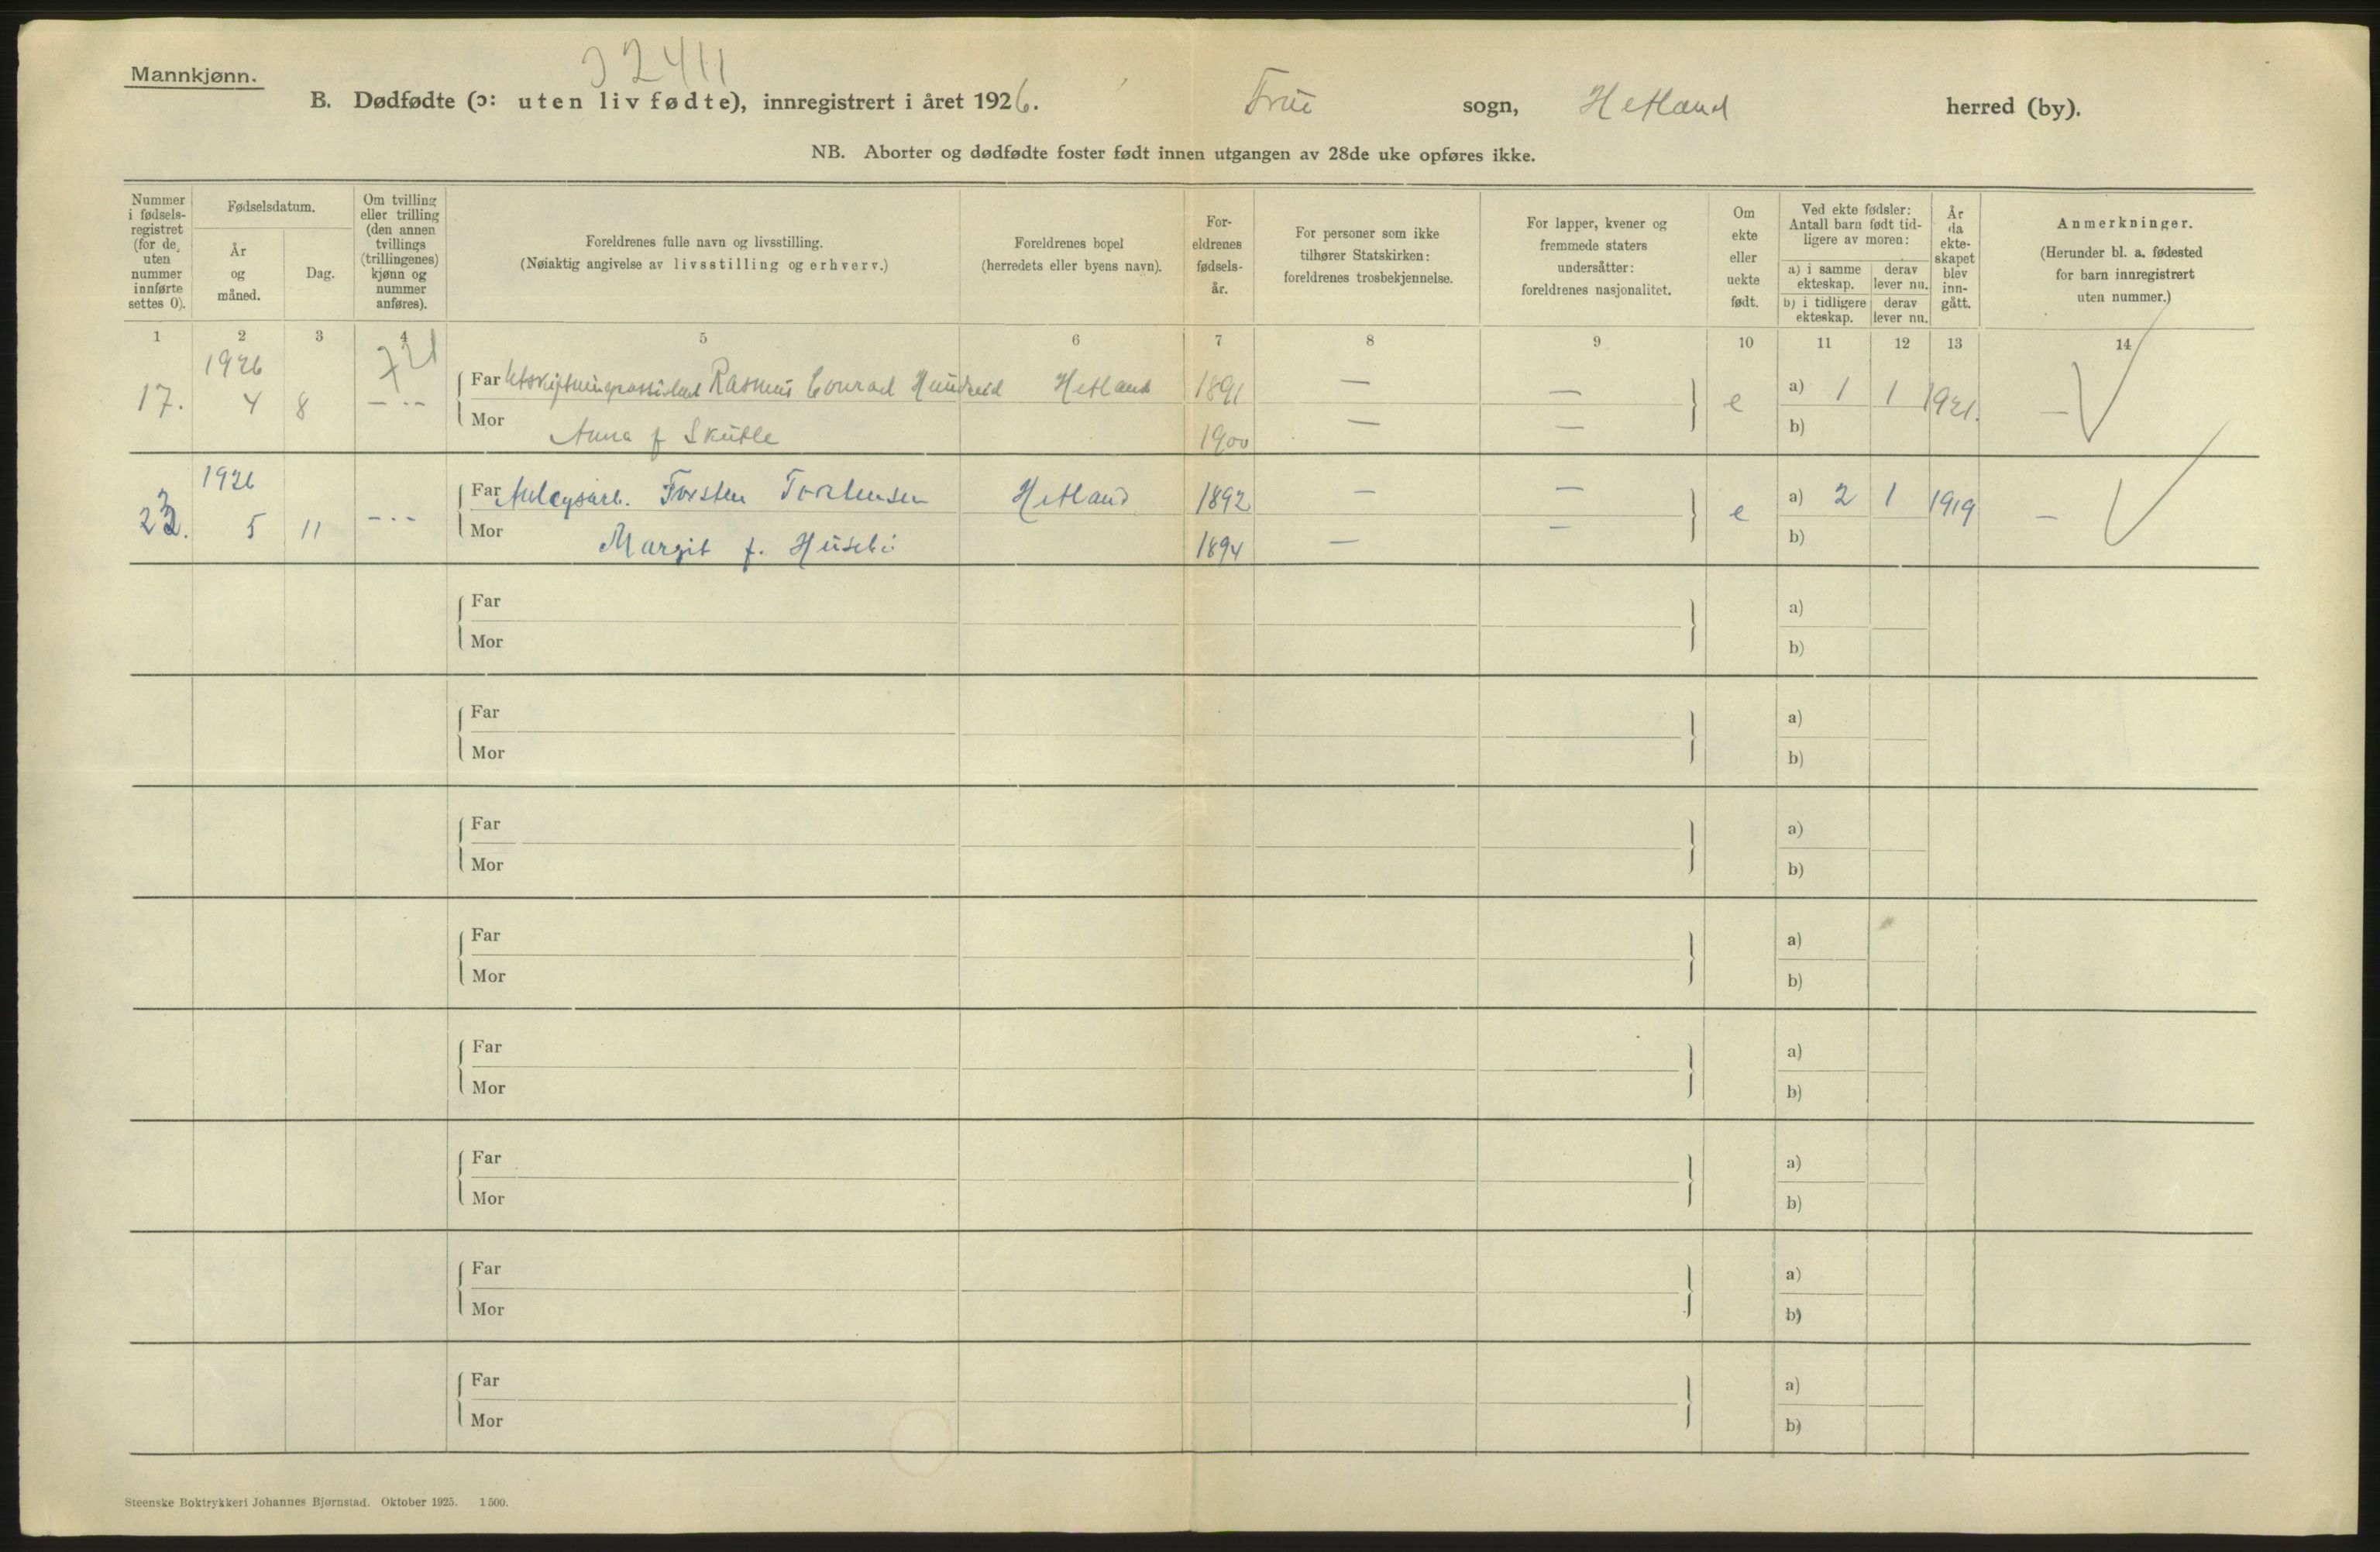 Mannkjønn.
B. Dødfødte (ɔ: uten liv fødte), innregistrert i året 1926. Frue sogn, Hetland herred (by).
NB. Aborter og dødfødte foster født innen utgangen av 28de uke opføres ikke.
Nummer i fødsels-registret (for de uten nummer innførte settes 0).
Fødselsdatum.
År og måned.
Dag.
Om tvilling eller trilling (den annen tvillings (trillingenes) kjønn og nummer anføres).
Foreldrenes fulle navn og livsstilling.
(Nøiaktig angivelse av livsstilling og erhverv.)
Foreldrenes bopel
(herredets eller byens navn).
For-eldrenes fødsels-år.
For personer som ikke tilhører Statskirken: foreldrenes trosbekjennelse.
For lapper, kvener og fremmede staters undersåtter: foreldrenes nasjonalitet.
Om ekte eller uekte født.
Ved ekte fødsler: Antall barn født tid-ligere av moren:
a) i samme ekteskap. derav lever nu.
b) i tidligere ekteskap. derav lever nu.
År da ekte-skapet blev inn-gått.
Anmerkninger.
(Herunder bl. a. fødested for barn innregistrert uten nummer.)
1 2 3 4 5 6 7 8 9 10 11 12 13 14
1926
17. 4 8 — Far Utskiftningsassistent Rasmus Conrad Hetland 1891 — — e a) 1 1 1921. —
Mor Anna f Skutle 1900 — — b)
1926
5 11 — Far Anlegsarb. Torsten Torstensen Hetland 1892 — — e a) 2 1 1919 —
Mor Margit f. Husebø 1894 — — b)
Far a)
Mor b)
Far a)
Mor b)
Far a)
Mor b)
Far a)
Mor b)
Far a)
Mor b)
Far a)
Mor b)
Far a)
Mor b)
Far a)
Mor b)
Steenske Boktrykkeri Johannes Bjørnstad. Oktober 1925. 1500.